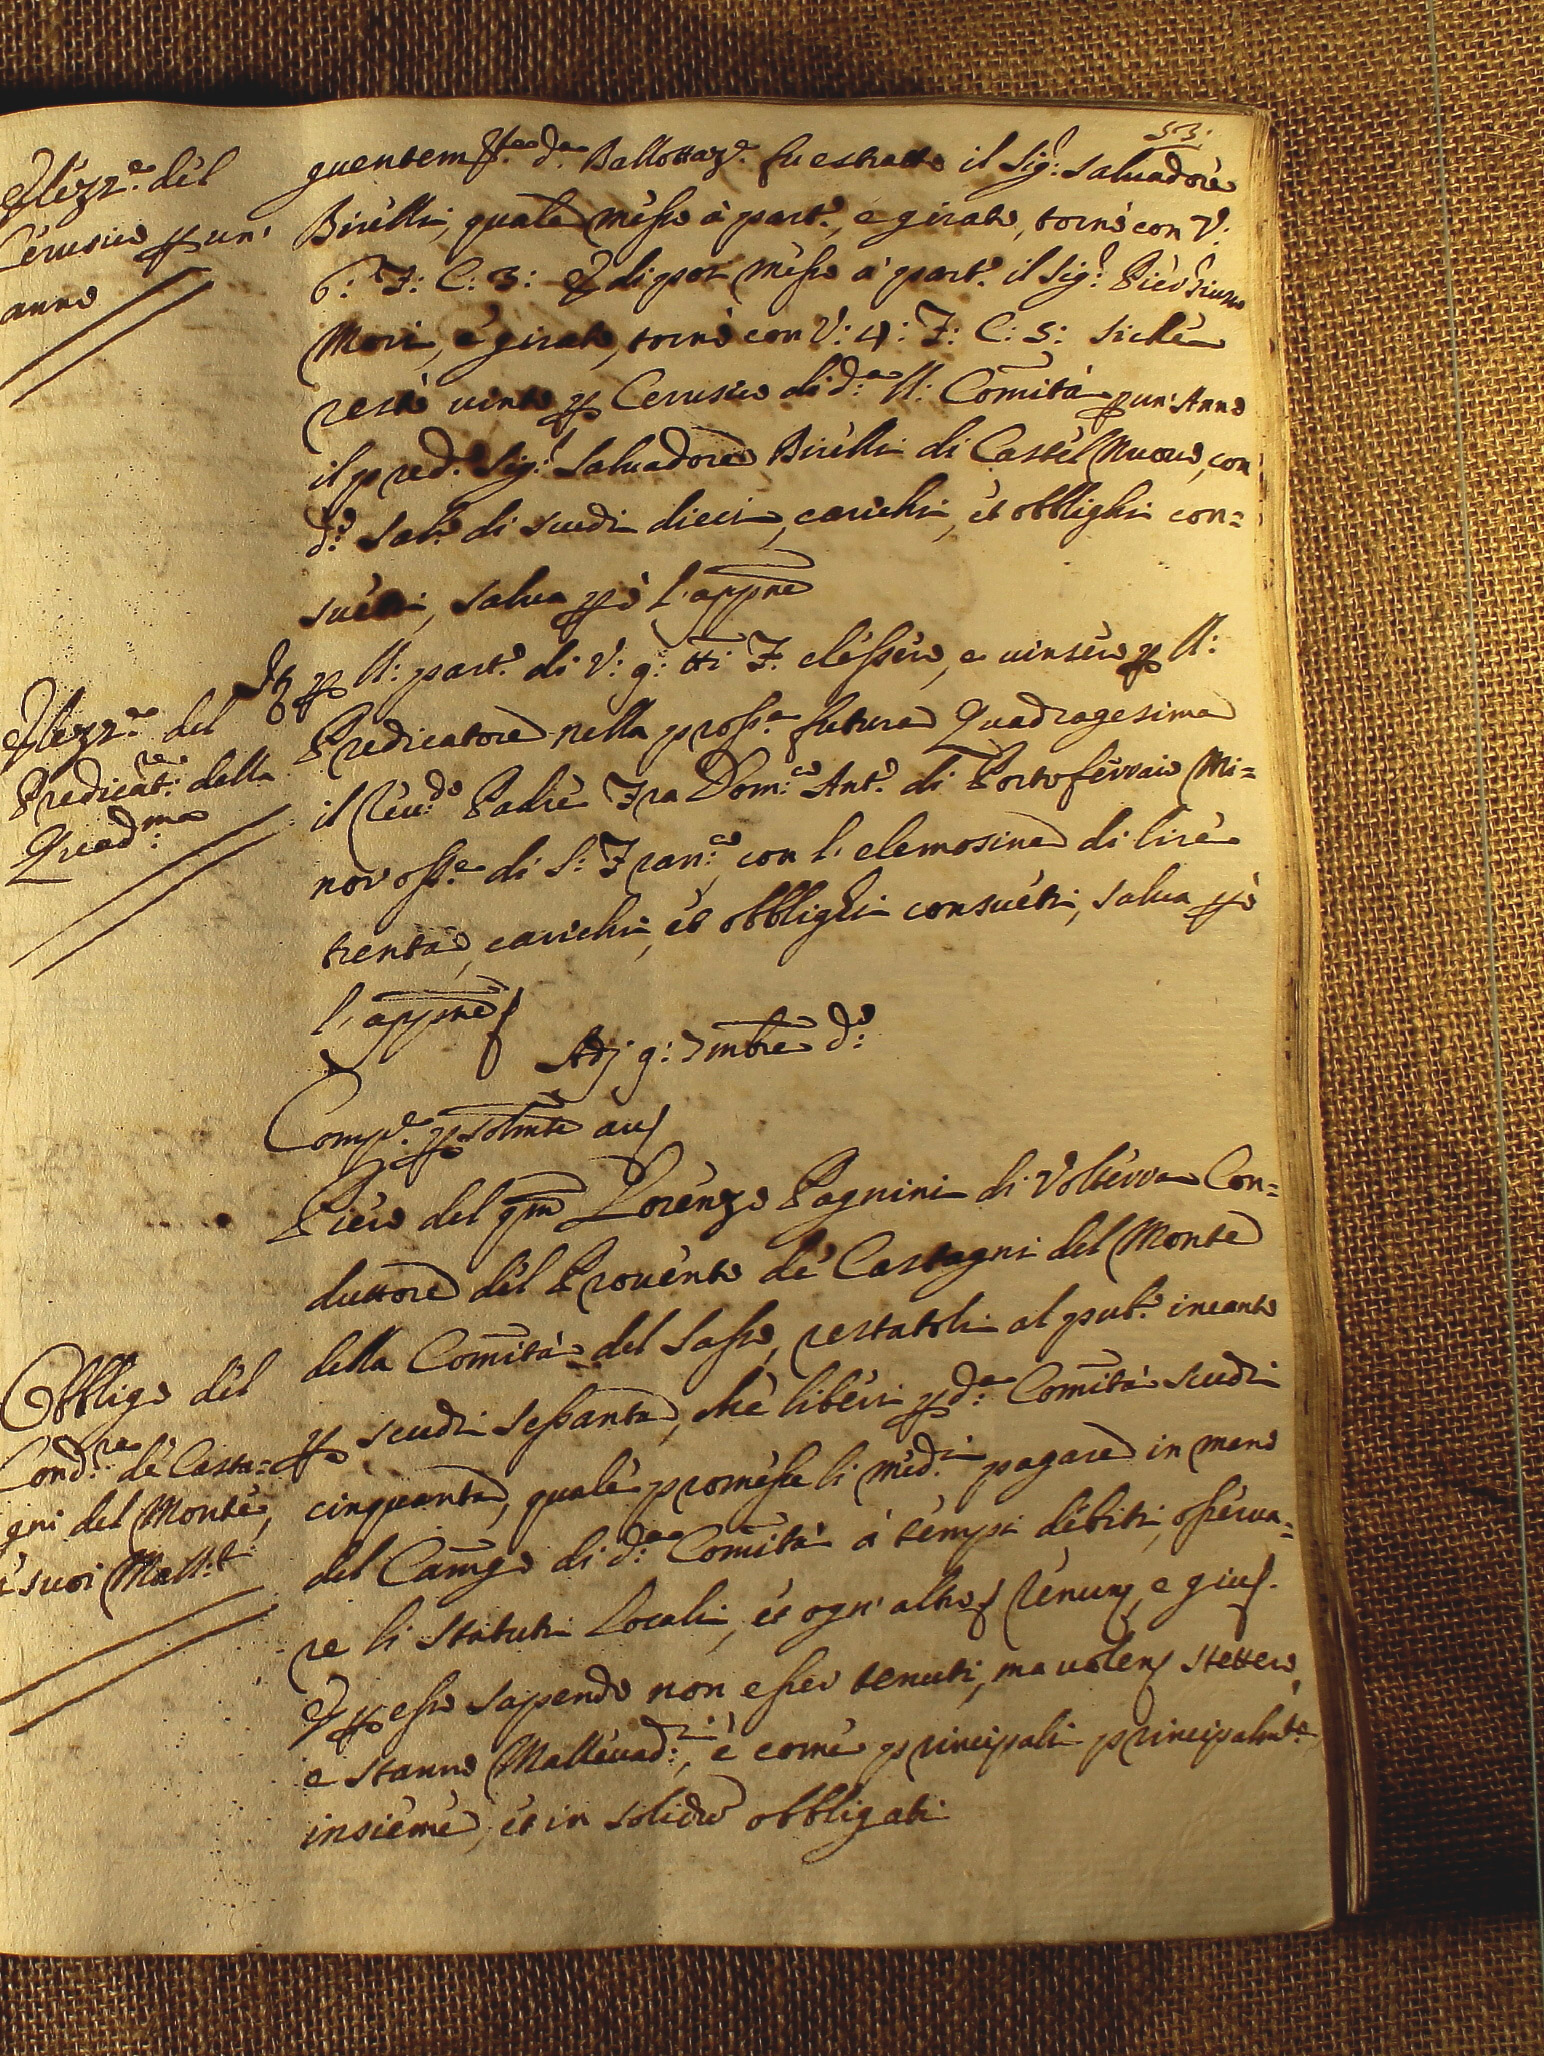 53:
Elezz.e del
Cerusico p un'
anno
guentem.te d.a Ballottaz.e fu estratto il Sig:r Salvadore
Birelli, quale messo à part.o, e girato, tornò con V:
6: F: C: 3: E di poi messo à part.o il Sig:r Pier
Mori, e girato, tornò con V: 4: F: C: 5: sichè
restò vinto p Cerusico di d.a M: Comità p un' Anno
il pred.o Sig:r Salvadore Birelli di Castel Nuovo, con
d.o Sal.o di scudi dieci, carichi, et obblighi con=
sueti, salva pò l'appne
Elezz.e del
Predicat:re della
Quad:ma
It p M: part.o di V: 9: tti F: elessero, e vinsero p M:
Predicatore nella pross.a futura Quadragesima
il Reu:do Padre Fra Dom:co Ant.o di Portoferraio Mi=
nor oss.e di S: Fran:co, con l'elemosina di lire
trenta, carichi, et obblighi consueti, salva pò
l'appne
Adj 9: 7mbre d.o
Comp.e psolmte av
Obbligo del
Cond:re de Casta=
gni del Monte,
e suoi Mall:i
Piero del qm Lorenzo Pagnini di Volterra Con=
duttore del Provento de Castagni del Monte
della Comità del Sasso, restatoli al pub.o incanto
p scudi sessanta, che liberi p d.a Comità scudi
cinquanta, quale promesse li med:i pagare in mano
del Camgo di d.a Comità à tempi debiti, osserva=
re li statuti Locali, et ogn' altro Renunz e giu
E p esso sapendo non esser tenuti, ma volen stettero,
e stanno Mallevad:ri, e come principali principalmte
insieme, et in solido obbligati